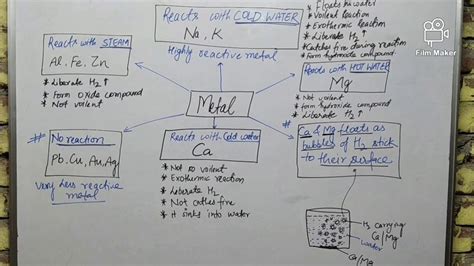 Reacts with STEAM
Al, Fe, Zn
* Liberate H₂ ↑
* Form oxide compound
* Not violent
Reacts with COLD WATER
Na, K
Highly reactive metal
* Floats in water
* Violent Reaction
* Exothermic Reaction
* Liberate H₂ ↑
* Catches fire during reaction
* Form hydroxide compound
Film Maker
Reacts with HOT WATER
Mg
* Not violent
* form hydroxide compound
* Liberate H₂ ↑
Metal
# No reaction
Pb, Cu, Au, Ag
Very Less reactive
metal
Reacts with Cold water
Ca
* Not so violent
* Exothermic reaction
* Liberate H₂
* Not catches fire
* It sinks into water
# Ca & Mg floats as
bubbles of H₂ stick
to their surface
H₂ carrying
Ca/Mg
water
Ca/Mg